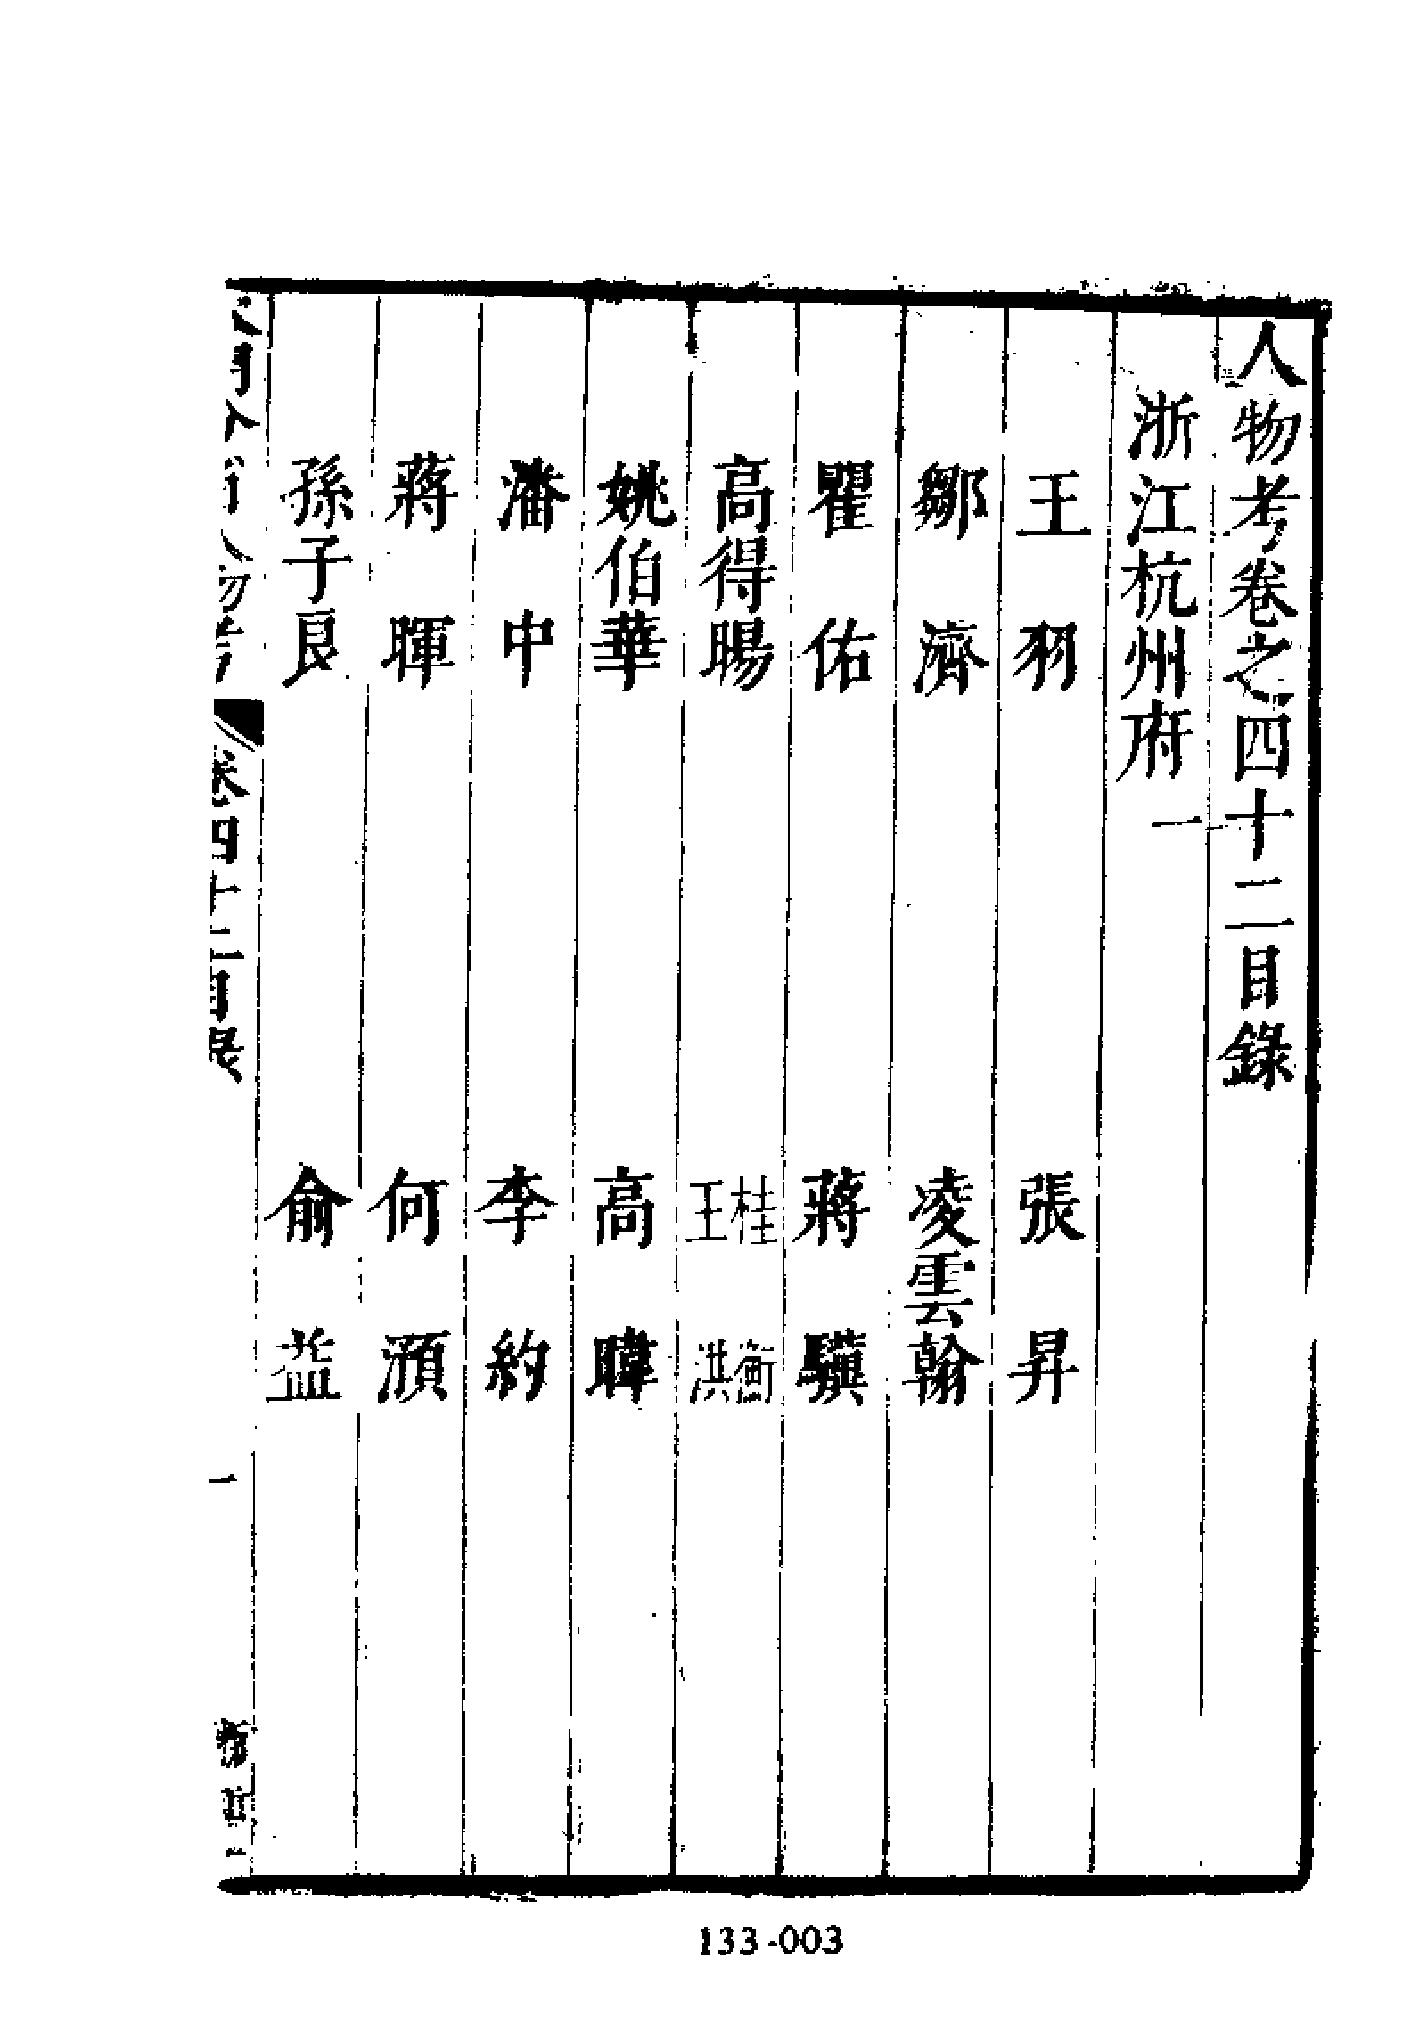 人物考卷之四十二目錄
浙江杭州府一
王羽 張昇
鄒濟 凌雲翰
瞿佑 蔣驥
高得暘 桂衡 王洪
姚伯華 高暐
潘中 李約
蔣暉 何澒
孫子良 俞益
卷四十二目錄
一
133-003